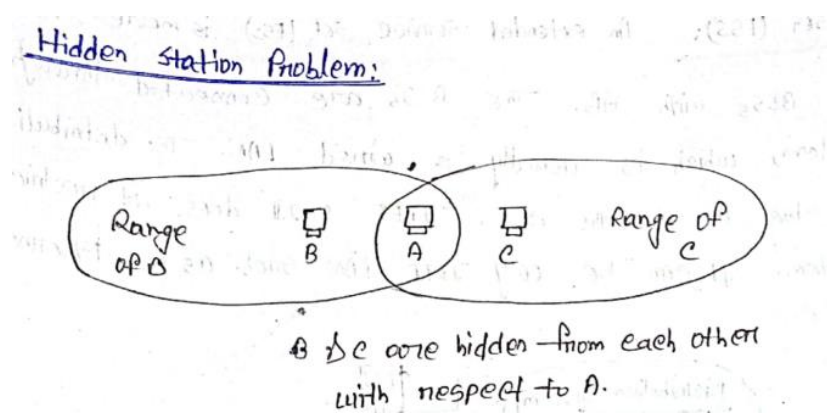 Hidden Station Problem:
Range
of B
B
A
C
Range of
C
B & C are hidden from each other
with respect to A.